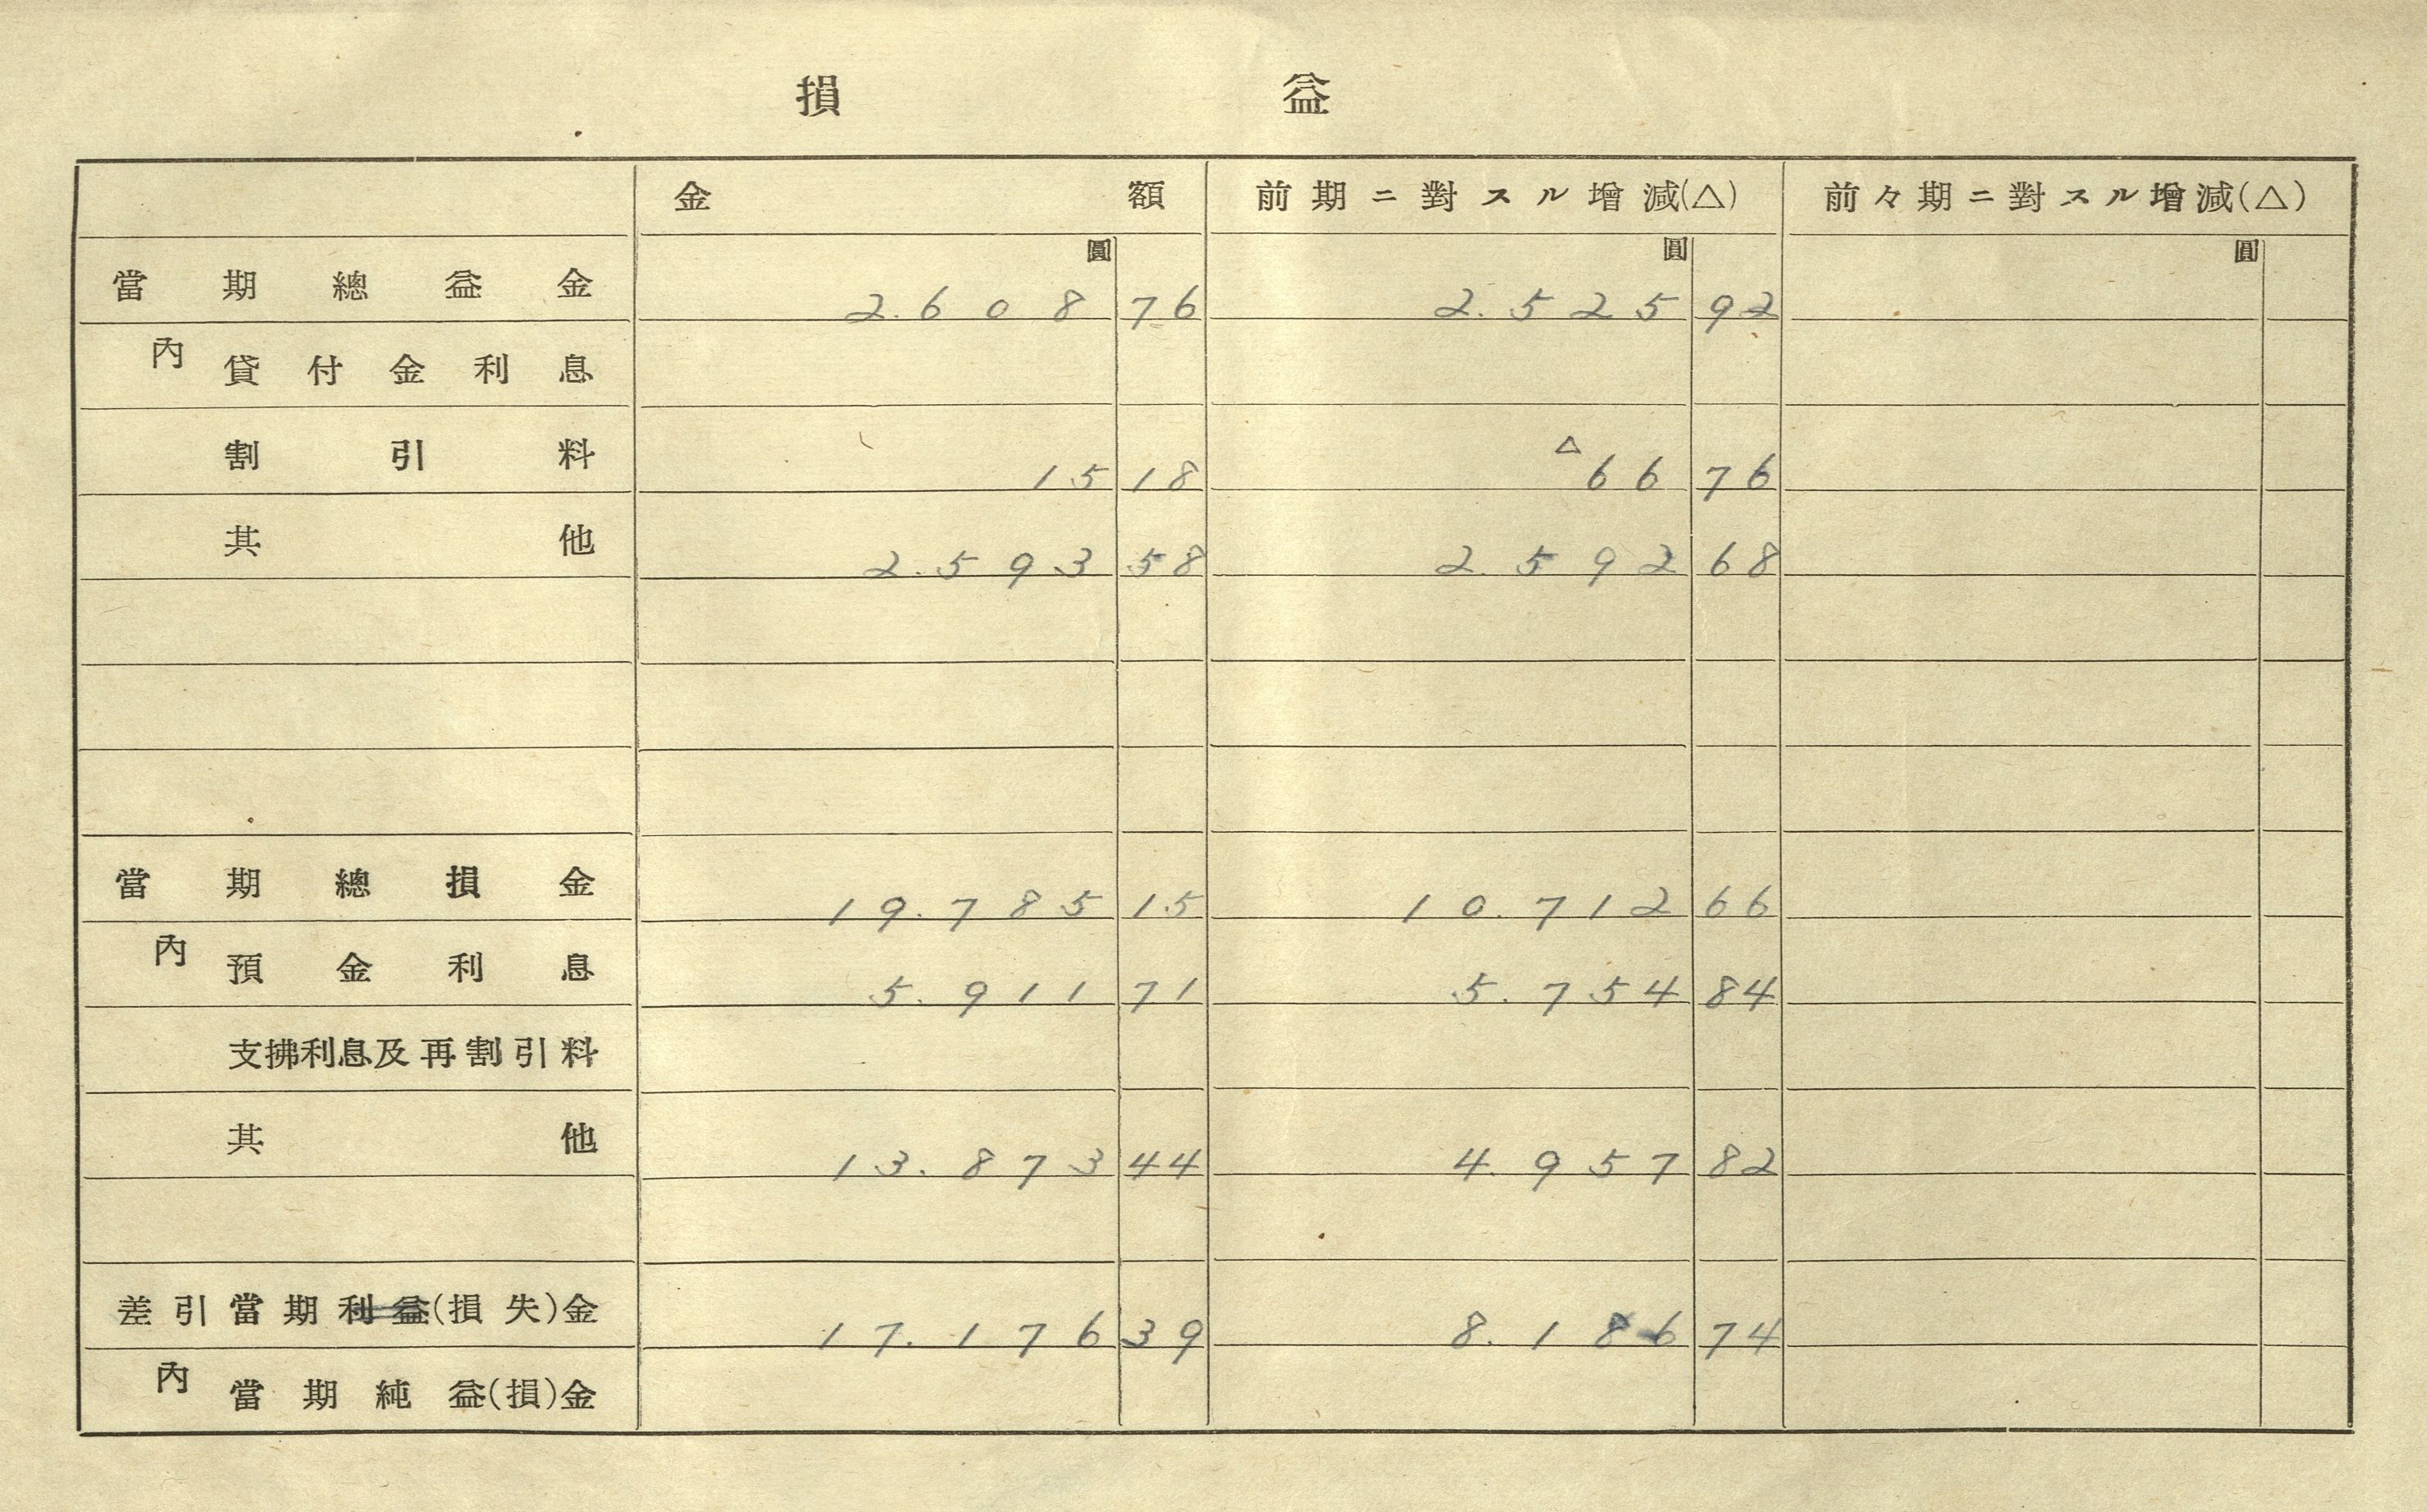 損益
金額 前期ニ對スル增減(△) 前々期ニ對スル增減(△)
圓 圓 圓
當期總益金 2.608 76 2.525 92
內 貸付金利息
割引料 15 18 △66 76
其他 2.593 58 2.592 68
當期總損金 19.785 15 10.712 66
內 預金利息 5.911 71 5.754 84
支拂利息及再割引料
其他 13.873 44 4.957 82
差引當期利益(損失)金 17.176 39 8.186 74
內 當期純益(損)金